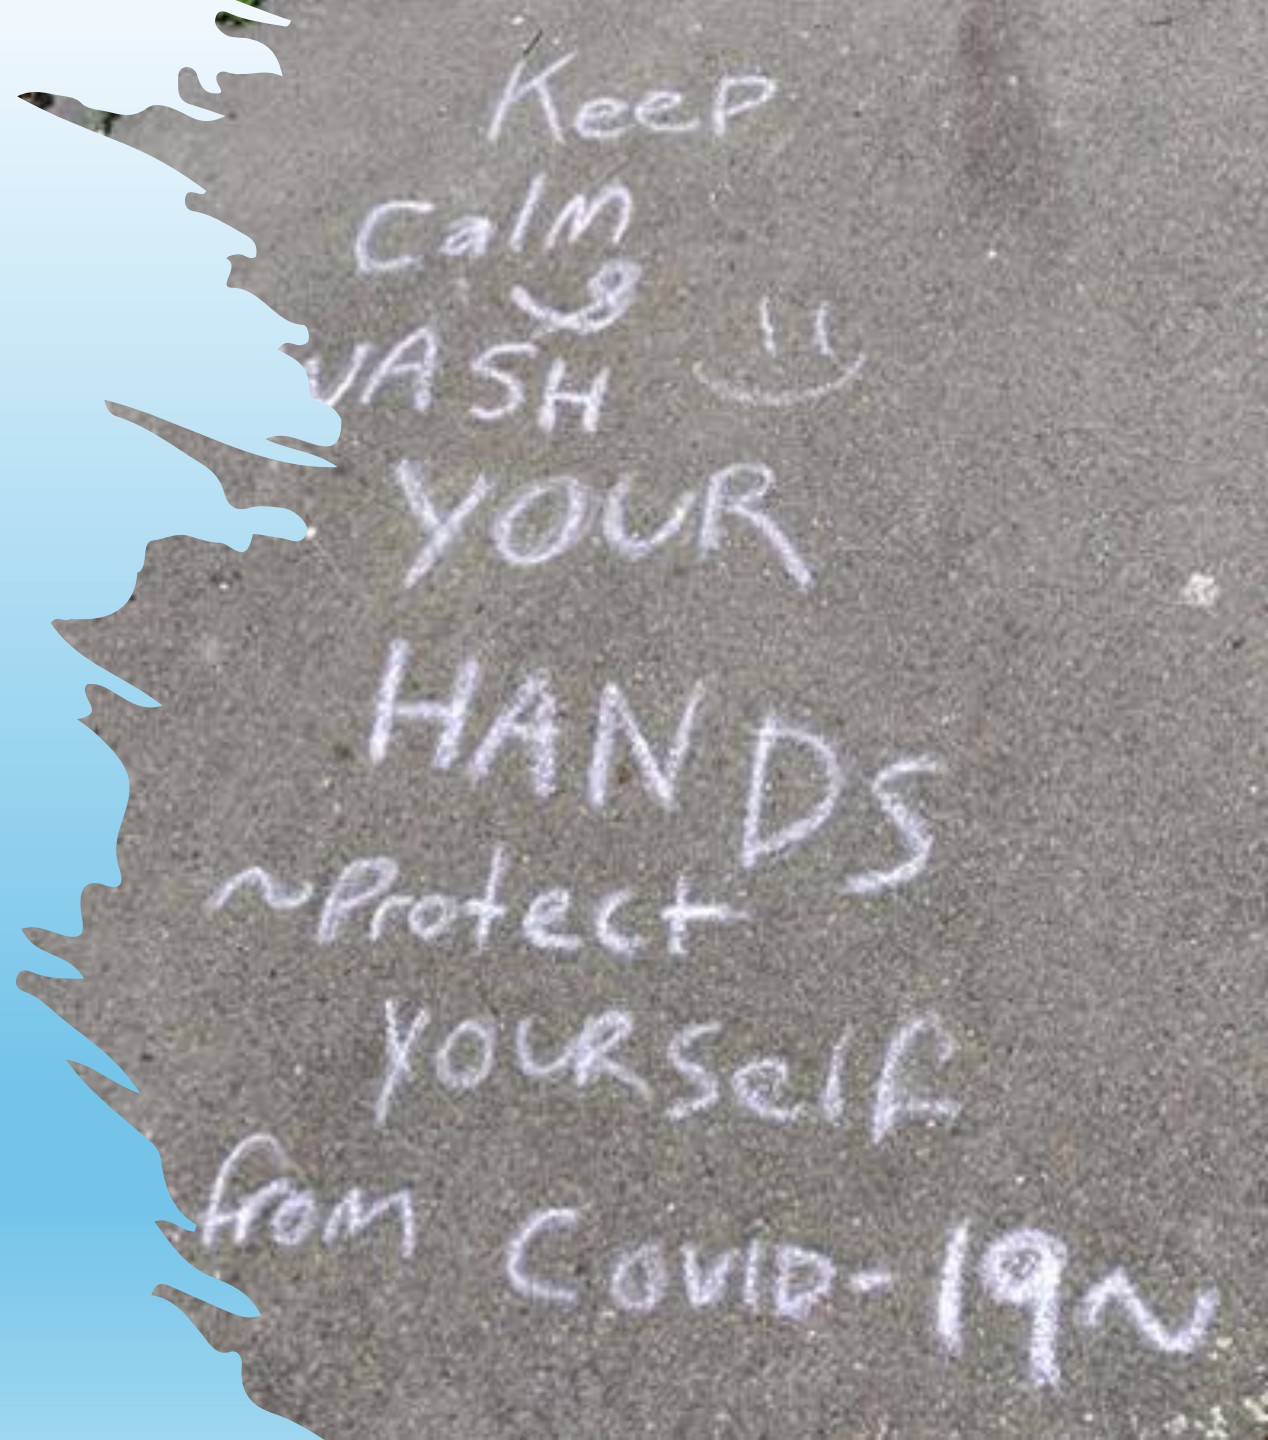 Keep
Calm
&
WASH
YOUR
HANDS
~Protect
YOURSelf
from COVID-19~